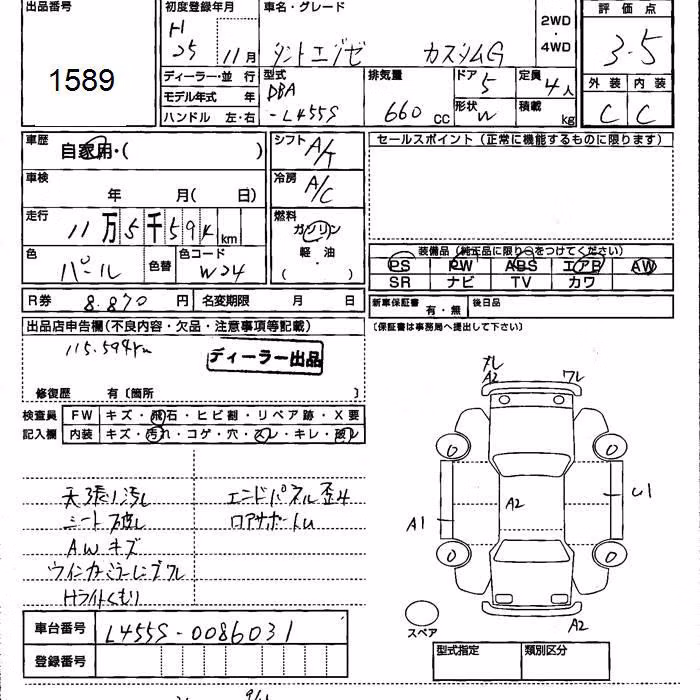 出品番号
1589
初度登録年月
H
25 11月
車名・グレード
タントエグゼ カスタムG
2WD
・
4WD
評価点
3.5
外装 内装
C C
ディーラー・並 行
モデル年式 年
ハンドル 左・右
型式
DBA
-L455S
排気量
660 CC
ドア
5
形状
W
定員
4人
積載
kg
車歴
自家用・( )
車検
年 月( 日)
走行
11万5千594 km
色
パール
色替
色コード
W24
シフト
A/T
冷房
A/C
燃料
ガソリン
軽・油
・
( )
セールスポイント(正常に機能するものに限ります)
装備品(純正品に限り○をつけてください)
PS PW ABS エアB AW
SR ナビ TV カワ
R券 8.870 円 名変期限 月 日
新車保証書 有・無 後日品
(保証書は事務局へ提出して下さい)
出品店申告欄(不良内容・欠品・注意事項等記載)
115.594km
ディーラー出品
修復歴 有〔箇所 〕
検査員
記入欄
FW キズ・飛石・ヒビ割・リペア跡・X要
内装 キズ・汚れ・コゲ・穴・スレ・キレ・破レ
天張リ汚レ
シート破レ
AWキズ
ウインカーミラーレンズワレ
Hライトくもり
エンドパネル歪み
ロアサポートU
A2
ワレ
0
0
A2
A1
U1
0
0
A2
スペア
車台番号 L455S-0086031
登録番号
型式指定 類別区分